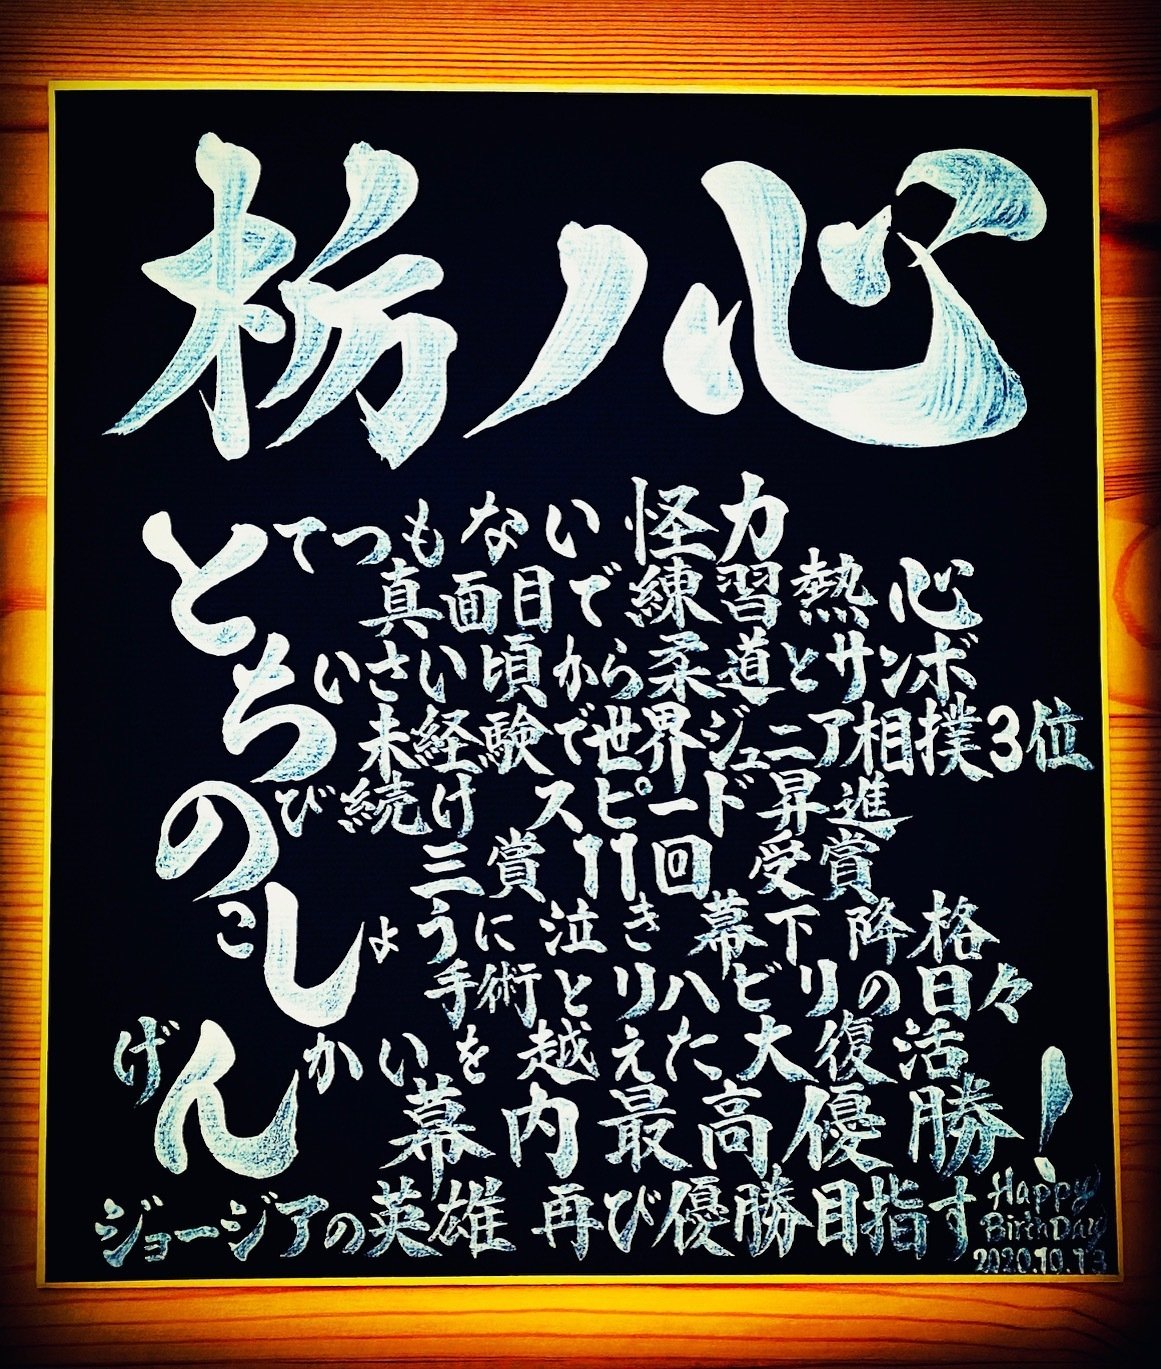 栃ノ心
とてつもない 怪力
真面目で練習熱心
ちいさい頃から柔道とサンボ
未経験で世界ジュニア相撲3位
のび続け スピード昇進
三賞11回 受賞
こしょうに泣き 幕下降格
手術とリハビリの日々
げんかいを越えた大復活
幕内最高優勝!
ジョージアの英雄 再び優勝目指す
Happy
BirthDay
2020.10.13